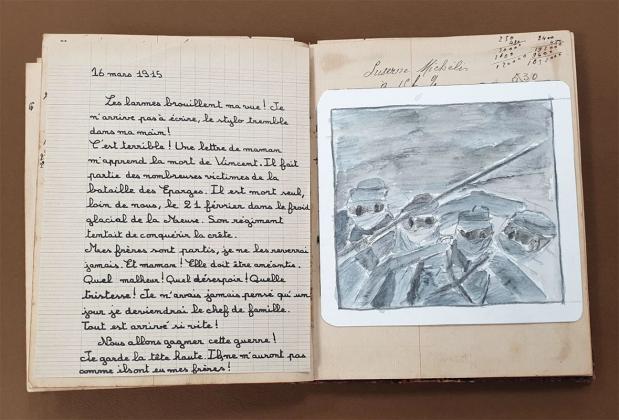 16 mars 1915
Les larmes brouillent ma vue ! Je
n'arrive pas à écrire, le stylo tremble
dans ma main !
C'est terrible ! Une lettre de maman
m'apprend la mort de Vincent. Il fait
partie des nombreuses victimes de la
bataille des Eparges. Il est mort seul,
loin de nous, le 21 février dans le froid
glacial de la Meuse. Son régiment
tentait de conquérir la crête.
Mes frères sont partis, je ne les reverrai
jamais. Et maman ! Elle doit être anéantie.
Quel malheur ! Quel désespoir ! Quelle
tristesse ! Je n'avais jamais pensé qu'un
jour je deviendrai le chef de famille.
Tout est arrivé si vite !
Nous allons gagner cette guerre !
Je garde la tête haute. Ils ne m'auront pas
comme ils ont eu mes frères !
Michelis